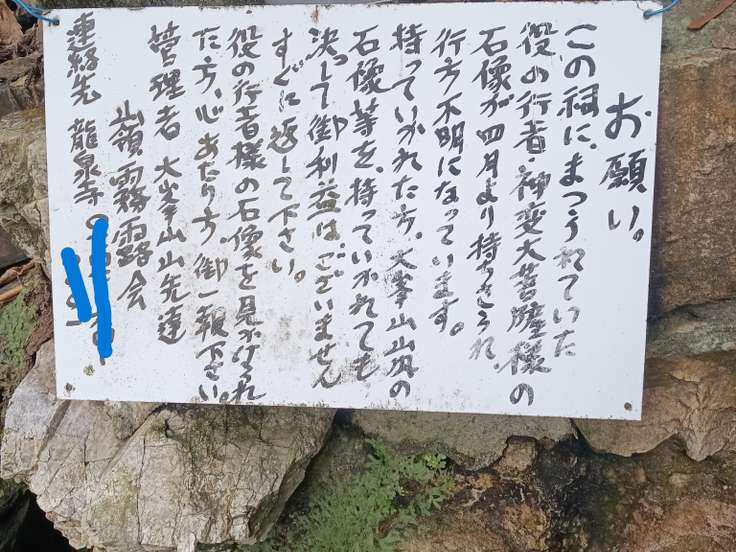 お願い。
この祠に、まつられていた
役の行者・神変大菩薩様の
石像が四月より持ちさられ、
行方不明になっています。
持っていかれた方、大峯山山内の
石像等を、持っていかれても
決して御利益は、ございません
すぐに返して下さい。
役の行者様の石像を見かけられ
た方、心あたり方、御一報下さい。
管理者 大峯山山先達
山嶺霧露会
連絡先 龍泉寺